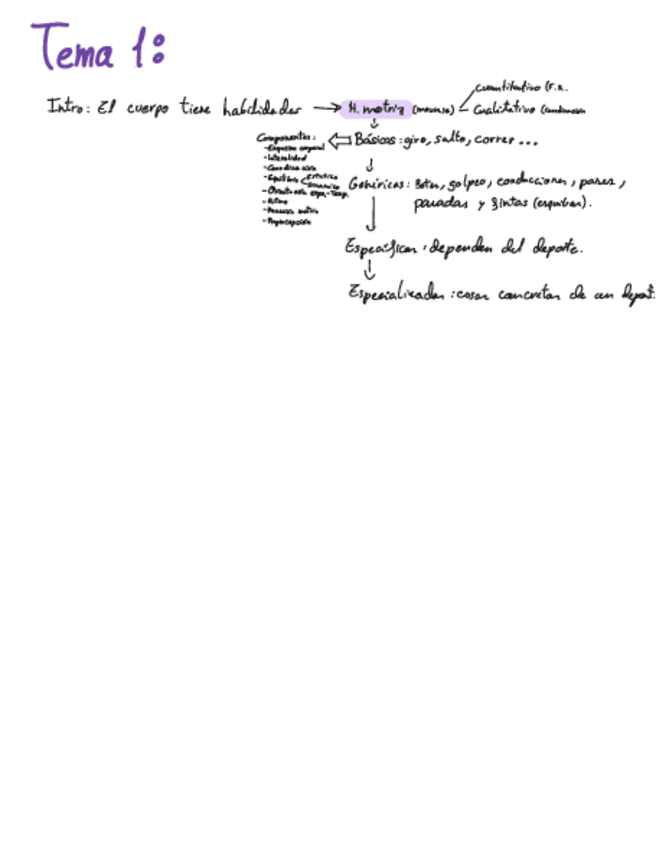 Tema 1:
cuantitativo (F.R.
Intro: El cuerpo tiene habilidades → H. motriz
Cualitativo
Componentes:
Básicas: giro, salto, correr ...
- Esquema corporal
- Lateralidad
- Coordinación
- Equilibrio Estático
Dinámico
Genéricas: Botes, golpeo, conducciones, pases,
paradas y fintas (esquivar).
- Ritmo
- Propiocepción
Específicas: dependen del deporte.
Especializadas: cosas concretas de un deport.